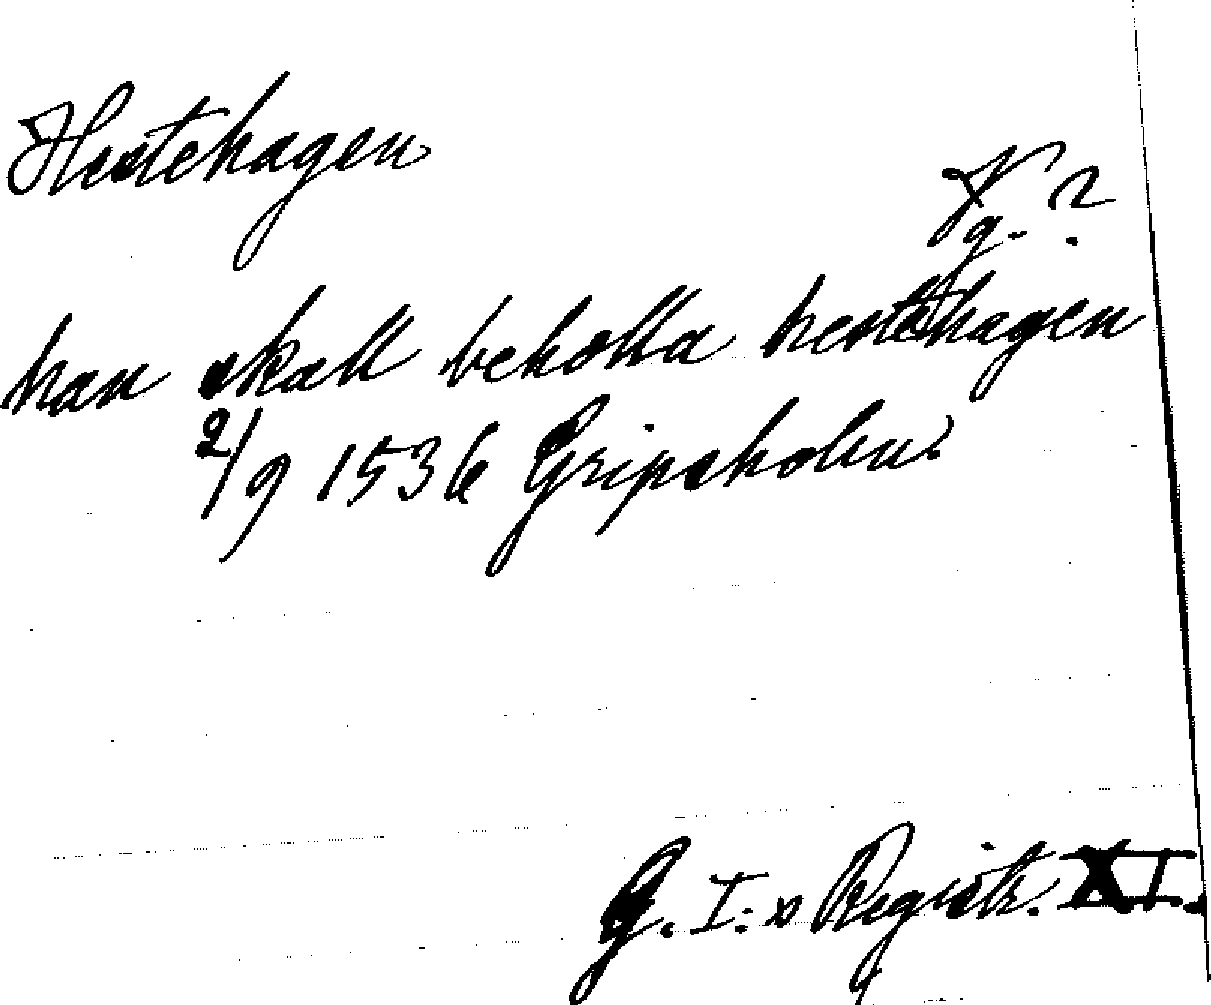 Hestehagen
Vg. ?
han skall beholla hestehagen
2/9 1536 Gripsholm
G. I:s Registr. XI.